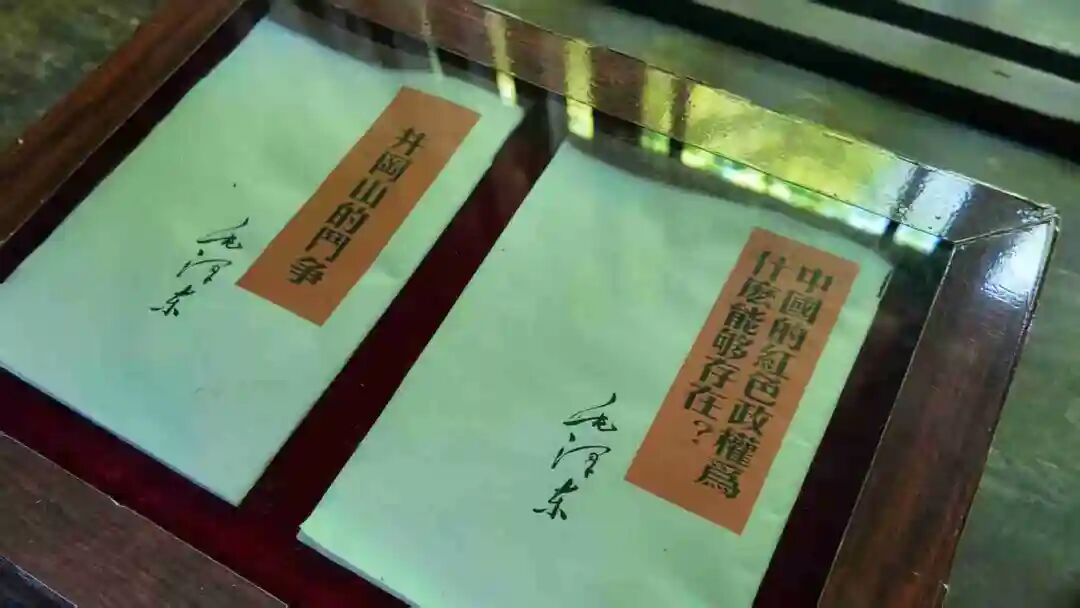 井岡山的鬥争
毛泽东
中國的紅色政權爲
什麽能够存在?
毛泽东